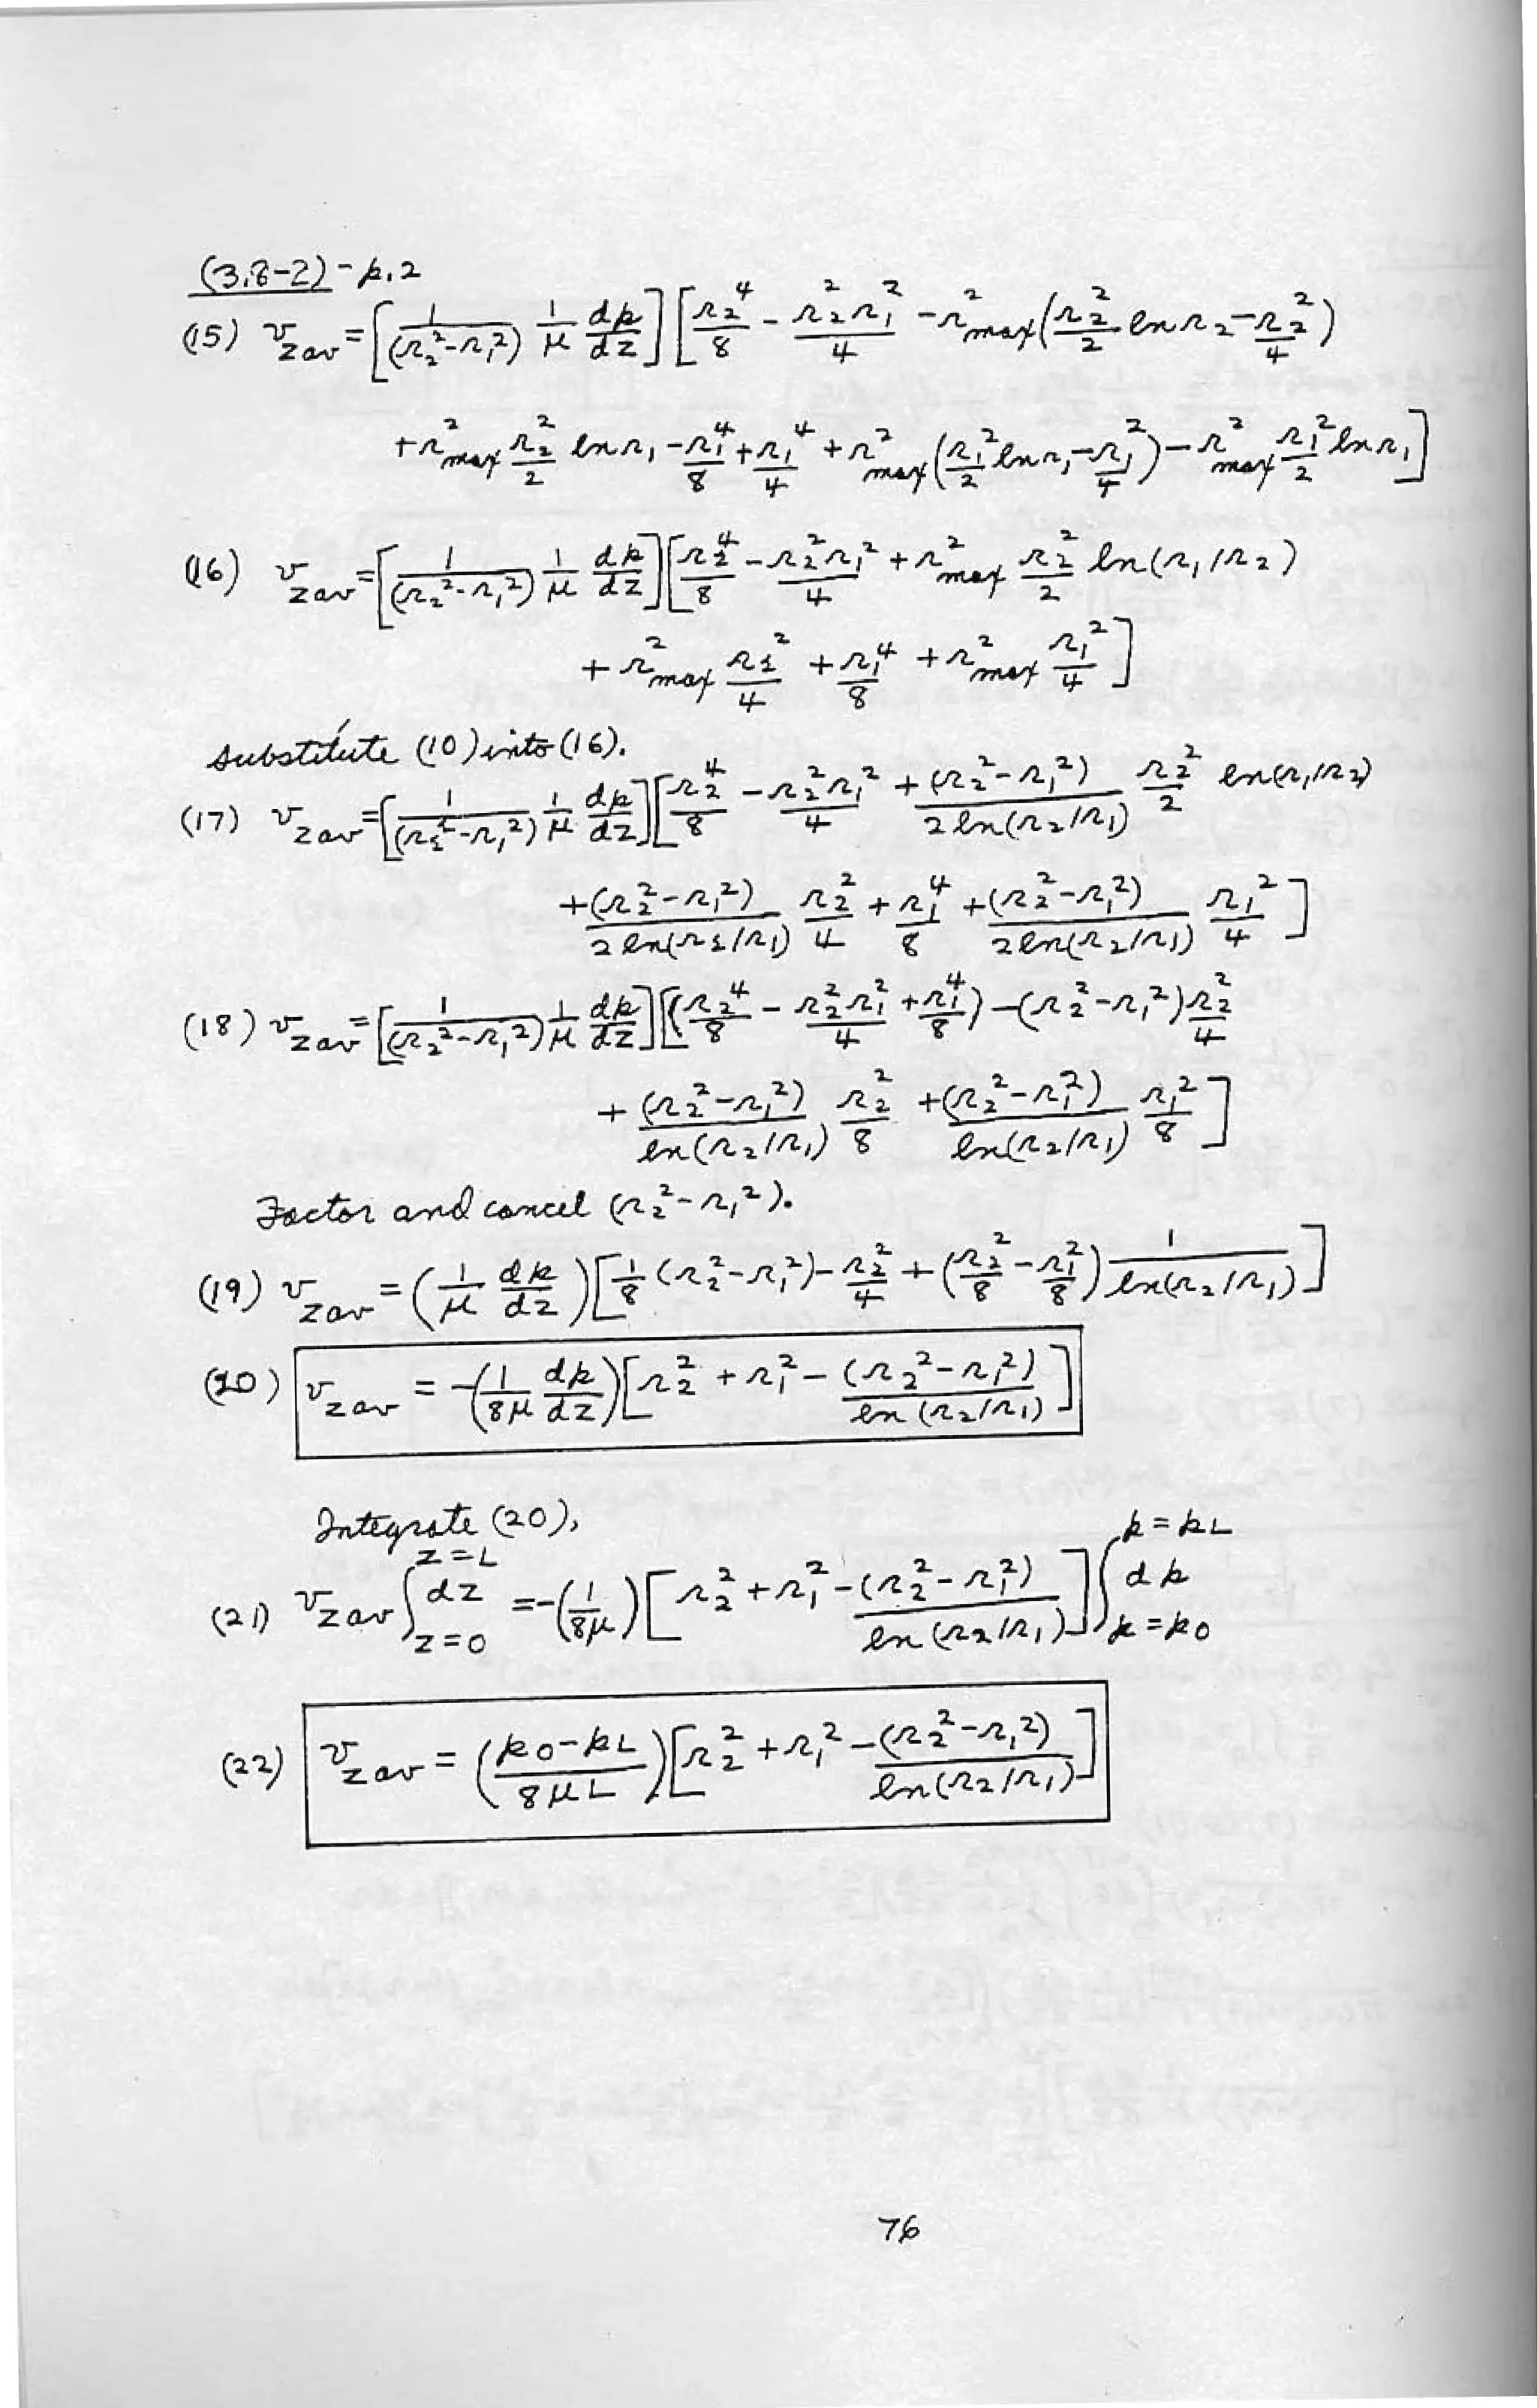 (3.8-2) - p.2
(15) v_zav = [1/(r₂²-r₁²) 1/μ dp/dz] [r₂⁴/8 - r₂²r₁²/4 - r²max(r₂²/2 ln r₂ - r₂²/4)
+ r²max r₂²/2 ln r₁ - r₁⁴/8 + r₁⁴/4 + r²max(r₁²/2 ln r₁ - r₁²/4) - r²max r₁²/2 ln r₁]
(16) v_zav = [1/(r₂²-r₁²) 1/μ dp/dz] [r₂⁴/8 - r₂²r₁²/4 + r²max r₂²/2 ln(r₁/r₂)
+ r²max r₂²/4 + r₁⁴/8 + r²max r₁²/4]
Substitute (10) into (16).
(17) v_zav = [1/(r₂²-r₁²) 1/μ dp/dz] [r₂⁴/8 - r₂²r₁²/4 + (r₂²-r₁²)/2ln(r₂/r₁) r₂²/2 ln(r₁/r₂)
+ (r₂²-r₁²)/2ln(r₂/r₁) r₂²/4 + r₁⁴/8 + (r₂²-r₁²)/2ln(r₂/r₁) r₁²/4]
(18) v_zav = [1/(r₂²-r₁²) 1/μ dp/dz] [(r₂⁴/8 - r₂²r₁²/4 + r₁⁴/8) - (r₂²-r₁²) r₂²/4
+ (r₂²-r₁²)/ln(r₂/r₁) r₂²/8 + (r₂²-r₁²)/ln(r₂/r₁) r₁²/8]
Factor and cancel (r₂²-r₁²).
(19) v_zav = (1/μ dp/dz) [1/8 (r₂²-r₁²) - r₂²/4 + (r₂²/8 - r₁²/8) 1/ln(r₂/r₁)]
(20) v_zav = -(1/8μ dp/dz) [r₂² + r₁² - (r₂²-r₁²)/ln(r₂/r₁)]
Integrate (20),
(21) v_zav ∫_{z=0}^{z=L} dz = -(1/8μ) [r₂² + r₁² - (r₂²-r₁²)/ln(r₂/r₁)] ∫_{p=p0}^{p=pL} dp
(22) v_zav = (p0-pL/8μL) [r₂² + r₁² - (r₂²-r₁²)/ln(r₂/r₁)]
76